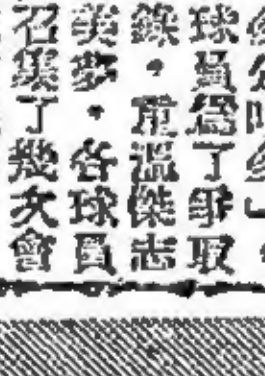 球員爲了爭取
錄，重溫傑志
美夢，各球員
召集了幾次會